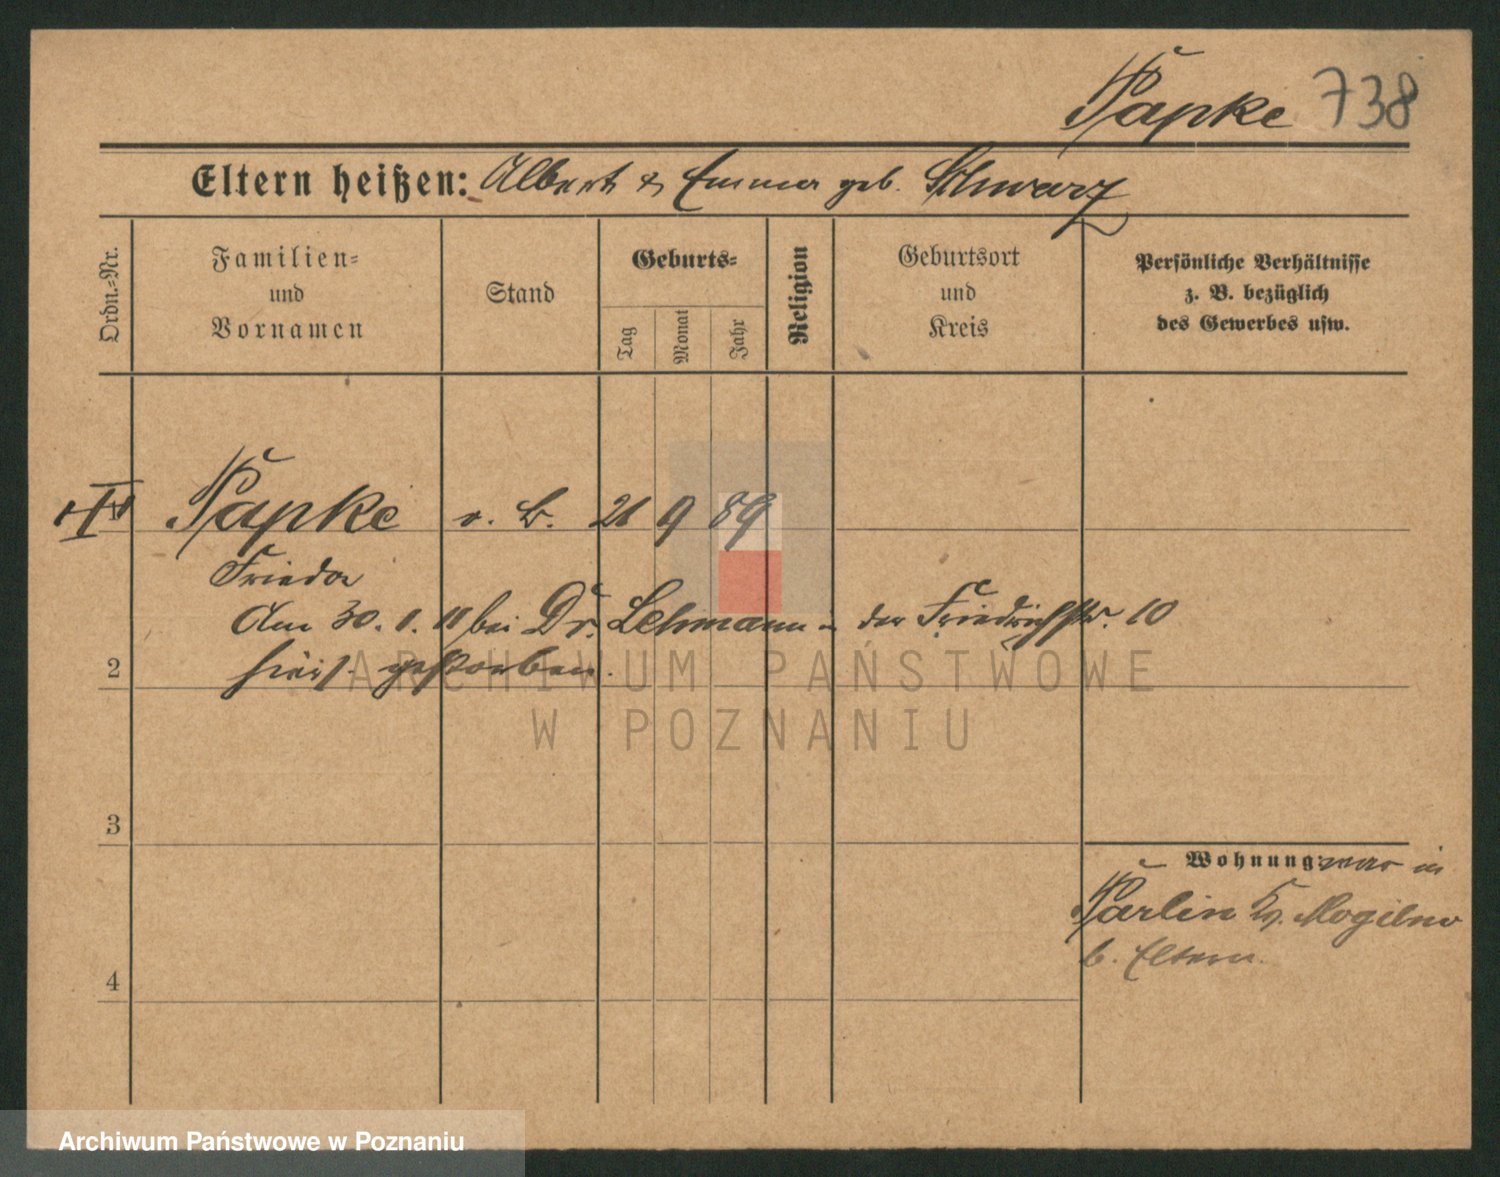 Papke 738
Eltern heißen: Albert & Emma geb. Schwarz
Ordn.-Nr.
Familien-
und
Vornamen
Stand
Geburts-
Tag
Monat
Jahr
Religion
Geburtsort
und
Kreis
Persönliche Verhältnisse
z. B. bezüglich
des Gewerbes usw.
Papke o. B. 21 9 89
Frieda
Am 30. 1. 11 bei Dr. Lehmann in der Friedrichstr. 10
hier gestorben.
2
3
4
Wohnung: war in
Parlin Kr. Mogilno
b. Eltern.
ARCHIWUM PAŃSTWOWE
W POZNANIU
Archiwum Państwowe w Poznaniu